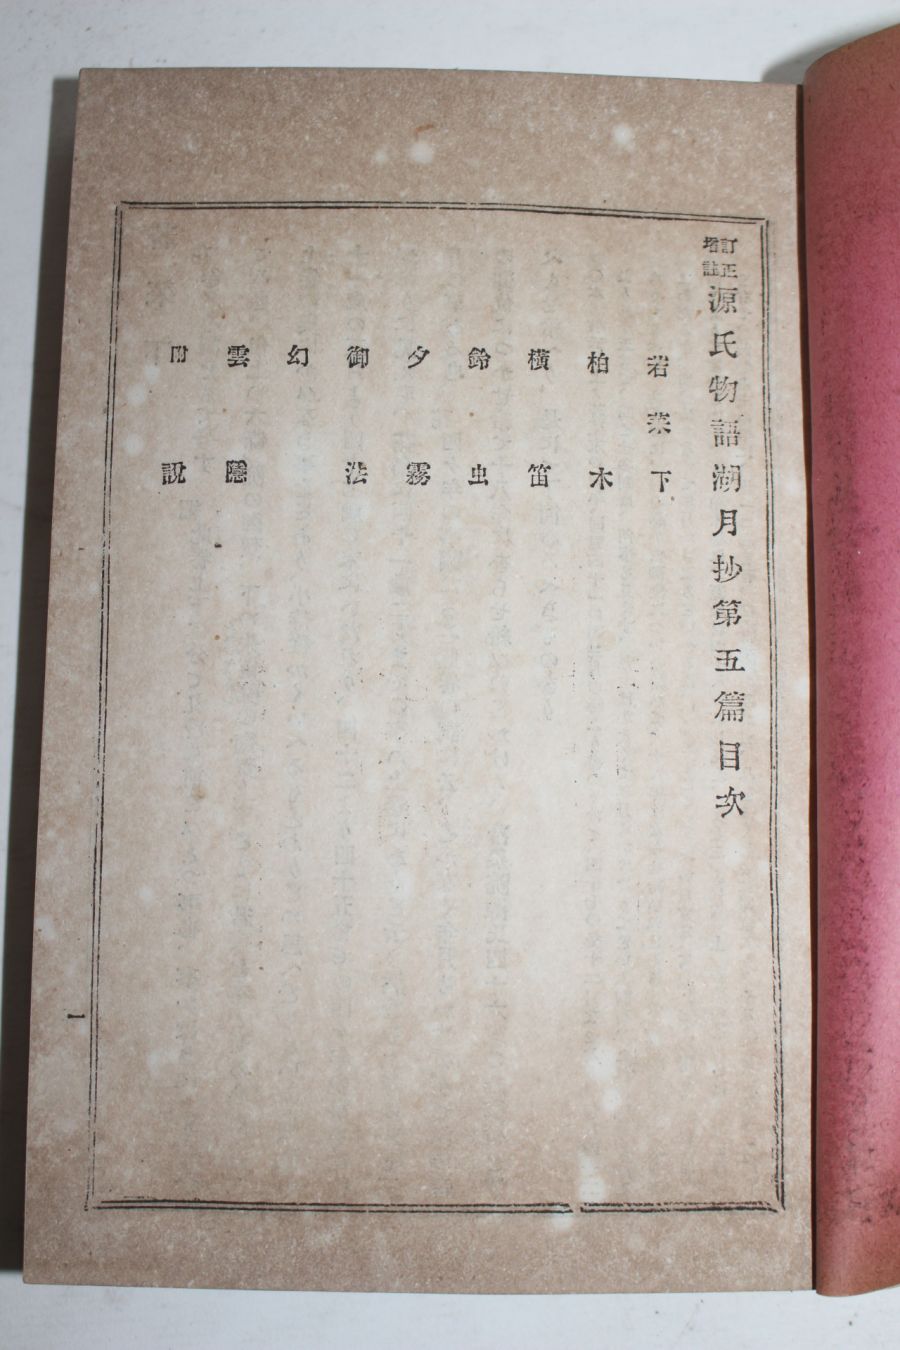 訂正増註源氏物語湖月抄第五篇目次
若菜下
柏木
横笛
鈴虫
夕霧
御法
幻
雲隠
附説
一